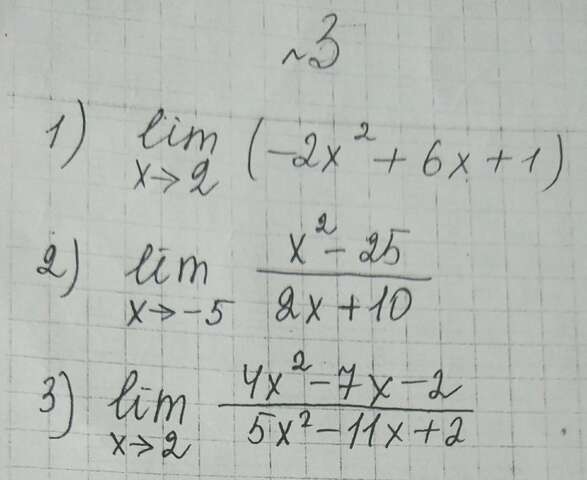 ~3
1) lim x→2 (-2x² + 6x + 1)
2) lim x→-5 (x² - 25)/(2x + 10)
3) lim x→2 (4x² - 7x - 2)/(5x² - 11x + 2)